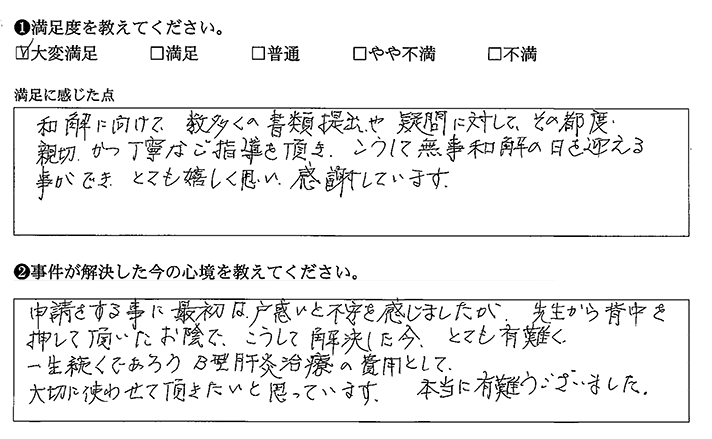 ❶満足度を教えてください。
☑大変満足 □満足 □普通 □やや不満 □不満
満足に感じた点
和解に向けて、数多くの書類提出や疑問に対して、その都度、
親切、かつ丁寧なご指導を頂き、こうして無事和解の日を迎える
事ができ、とても嬉しく思い、感謝しています。
❷事件が解決した今の心境を教えてください。
申請をする事に最初は戸惑いと不安を感じましたが、先生から背中を
押して頂いたお陰で、こうして解決した今、とても有難く、
一生続くであろうB型肝炎治療の費用として、
大切に使わせて頂きたいと思っています。 本当に有難うございました。